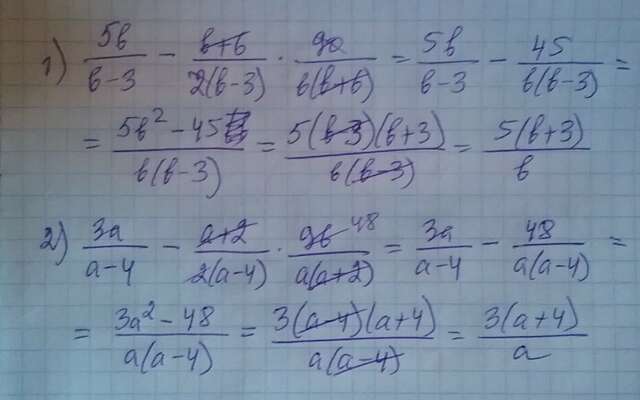 1) 5b/(b-3) - (b+6)/(2(b-3)) · 90/(b(b+6)) = 5b/(b-3) - 45/(b(b-3)) =
= (5b² - 45)/(b(b-3)) = (5(b-3)(b+3))/(b(b-3)) = (5(b+3))/b
2) 3a/(a-4) - (a+2)/(2(a-4)) · 96 48/(a(a+2)) = 3a/(a-4) - 48/(a(a-4)) =
= (3a² - 48)/(a(a-4)) = (3(a-4)(a+4))/(a(a-4)) = (3(a+4))/a